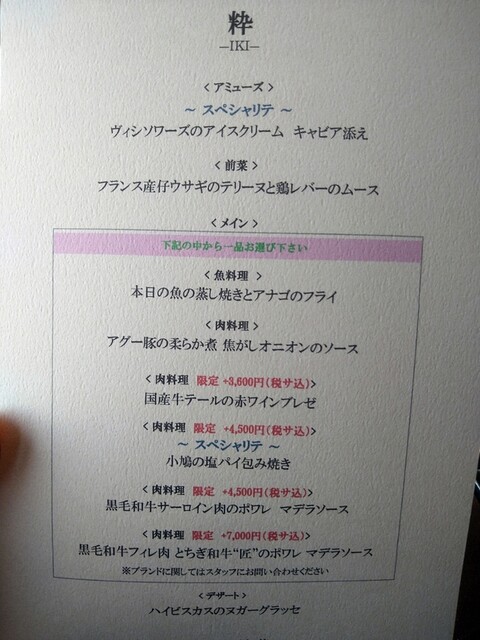 粋
—IKI—
< アミューズ >
～ スペシャリテ ～
ヴィシソワーズのアイスクリーム キャビア添え
< 前菜 >
フランス産仔ウサギのテリーヌと鶏レバーのムース
< メイン >
下記の中から一品お選び下さい
< 魚料理 >
本日の魚の蒸し焼きとアナゴのフライ
< 肉料理 >
アグー豚の柔らか煮 焦がしオニオンのソース
< 肉料理 限定 +3,600円(税サ込)>
国産牛テールの赤ワインブレゼ
< 肉料理 限定 +4,500円(税サ込)>
～ スペシャリテ ～
小鳩の塩パイ包み焼き
< 肉料理 限定 +4,500円(税サ込)>
黒毛和牛サーロイン肉のポワレ マデラソース
< 肉料理 限定 +7,000円(税サ込)>
黒毛和牛フィレ肉 とちぎ和牛“匠”のポワレ マデラソース
※ブランドに関してはスタッフにお問い合わせください
< デザート >
ハイビスカスのヌガーグラッセ